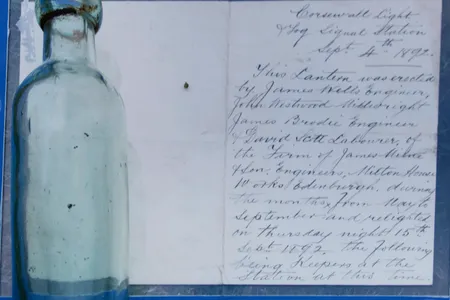 Corsewall Light
& Fog Signal Station
Sept 4th 1892.
This Lantern was erected
by James Wells Engineer,
John Westwood Millwright
James Brodie Engineer
& David Scott Labourer, of
the Firm of James Milne
& Son, Engineers, Milton House
Works, Edinburgh, during
the months from May to
September and relighted
on Thursday night 15th
Sept 1892. the following
being Keepers at the
Station at this time